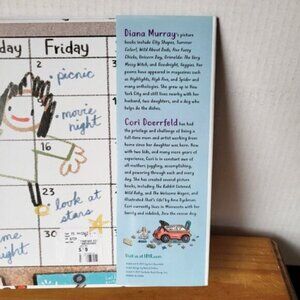 day
Friday
2
picnic
9
movie
night
16
23
look at
stars
30
me
night
Diana Murray's picture
books include City Shapes, Summer
Color!, Wild About Dads, Five Fuzzy
Chicks, Unicorn Day, Grimelda: The Very
Messy Witch, and Goodnight, Veggies. Her
poems have appeared in magazines such as
Highlights, High Five, and Spider and
many anthologies. She grew up in New
York City and still lives nearby with her
husband, two daughters, and a dog who
helps do the dishes.
Cori Doerrfeld has had
the privilege and challenge of being a
full-time mom and artist working
from home since her daughter was born. Now
with two kids, and many more years of
experience, Cori is in constant awe of
all mothers juggling, accomplishing,
and powering through each and every
day. She has created several picture
books, including, The Rabbit Listened,
Wild Baby, and The Welcome Wagon, and
illustrated That's Life! by Ame Dyckman.
Cori currently lives in Minnesota with her
family and
Zora the rescue dog.
Visit us at